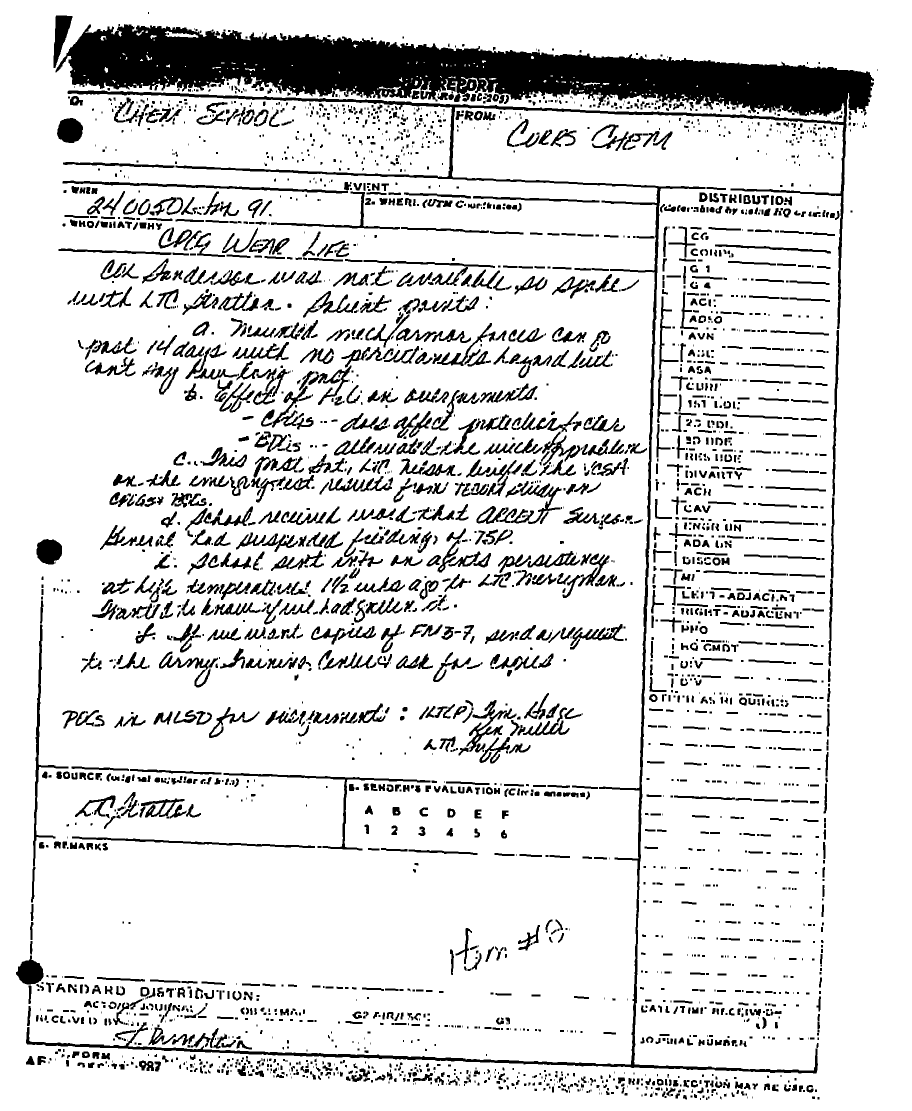 REPORT
CHEM SCHOOL
FROM:
CORPS CHEM
EVENT
WHEN
240050L Jan 91.
2. WHERE (UTM Coordinates)
WHO/WHAT/WHY
CPOG WEAR LIFE
Col Sanderson was not available, so spoke
with LTC Stratton. Salient points:
a. Mounted mech/armor forces can go
past 14 days with no percutaneous hazard but
can't say how long past.
b. Effect of H2O on overgarments.
- CPOGs -- does affect protection factor
- BDOs -- alleviated the wicking problem
c. This past Sat, LTC Nelson briefed the VCSA
on the emerging test results from TECOM study on
CPOGs + BDOs.
d. School received word that ARCENT Surgeon
General had suspended fielding of TSP.
e. School sent info on agents persistency
at high temperatures 1½ wks ago to LTC Merryman.
Wanted to know if we had gotten it.
f. If we want copies of FM 3-7, send a request
to the Army Training Center & ask for copies.
POCs in MLSD for overgarments: 1LT(P) Jim Hodge
Ken Miller
LTC Griffin
DISTRIBUTION
(determined by using HQ or units)
CG
CORPS
G 1
G 4
ADSO
AVN
ASA
1ST BDE
2D BDE
3D BDE
RES BDE
DIVARTY
ACR
CAV
ENGR BN
ADA BN
DISCOM
MI
LEFT-ADJACENT
RIGHT-ADJACENT
PPO
HQ CMDT
DIV
DIV
OTHER AS REQUIRED
4. SOURCE (original supplier of info)
LTC Stratton
5. SENDER'S EVALUATION (Circle answers)
A B C D E F
1 2 3 4 5 6
6. REMARKS
Item #2
STANDARD DISTRIBUTION:
JOURNAL
G3
RECEIVED BY
DATE/TIME RECEIVED
JOURNAL NUMBER
FORM
987
PREVIOUS EDITION MAY BE USED.